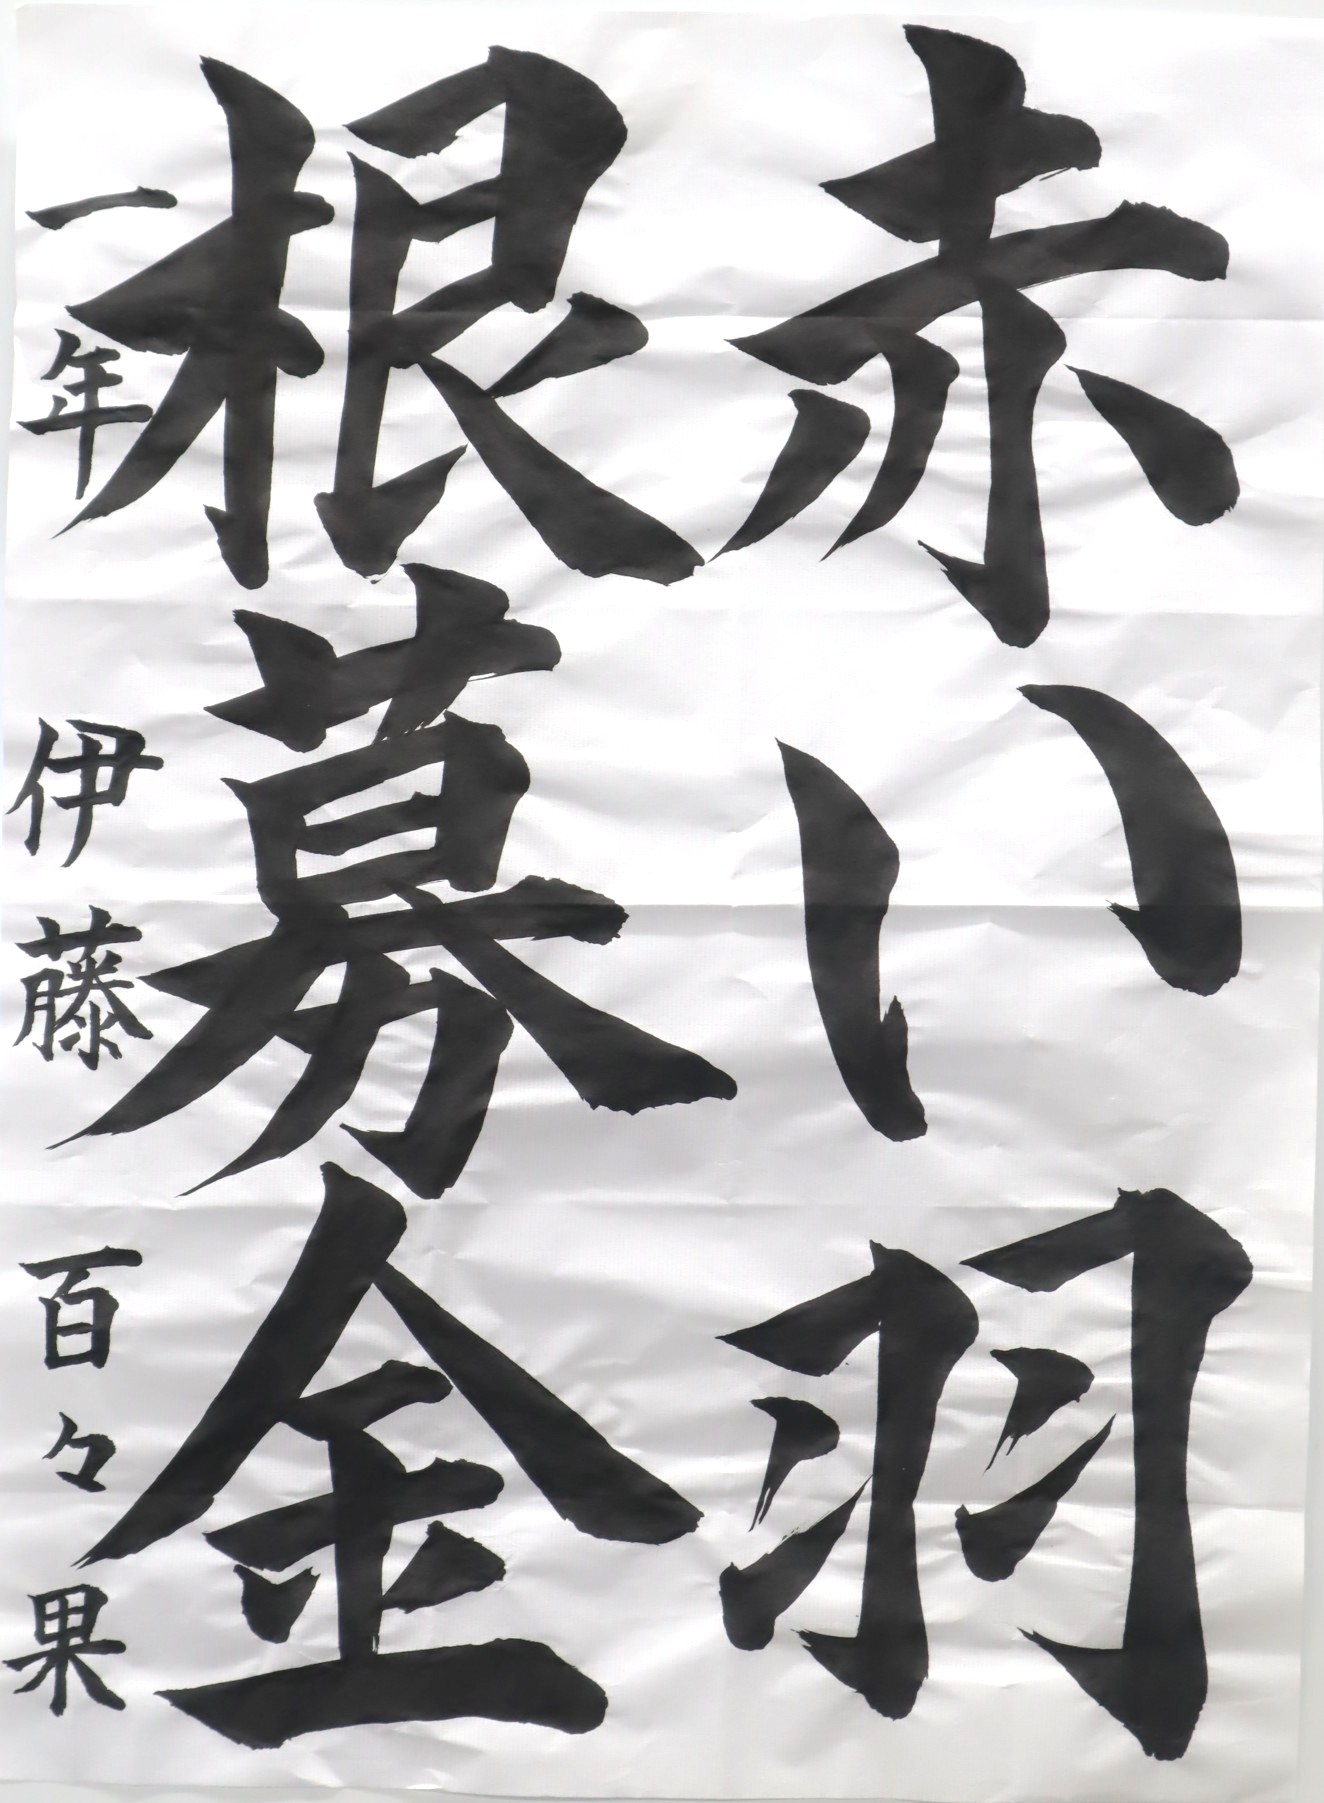 赤い羽
根募金
一年 伊藤百々果